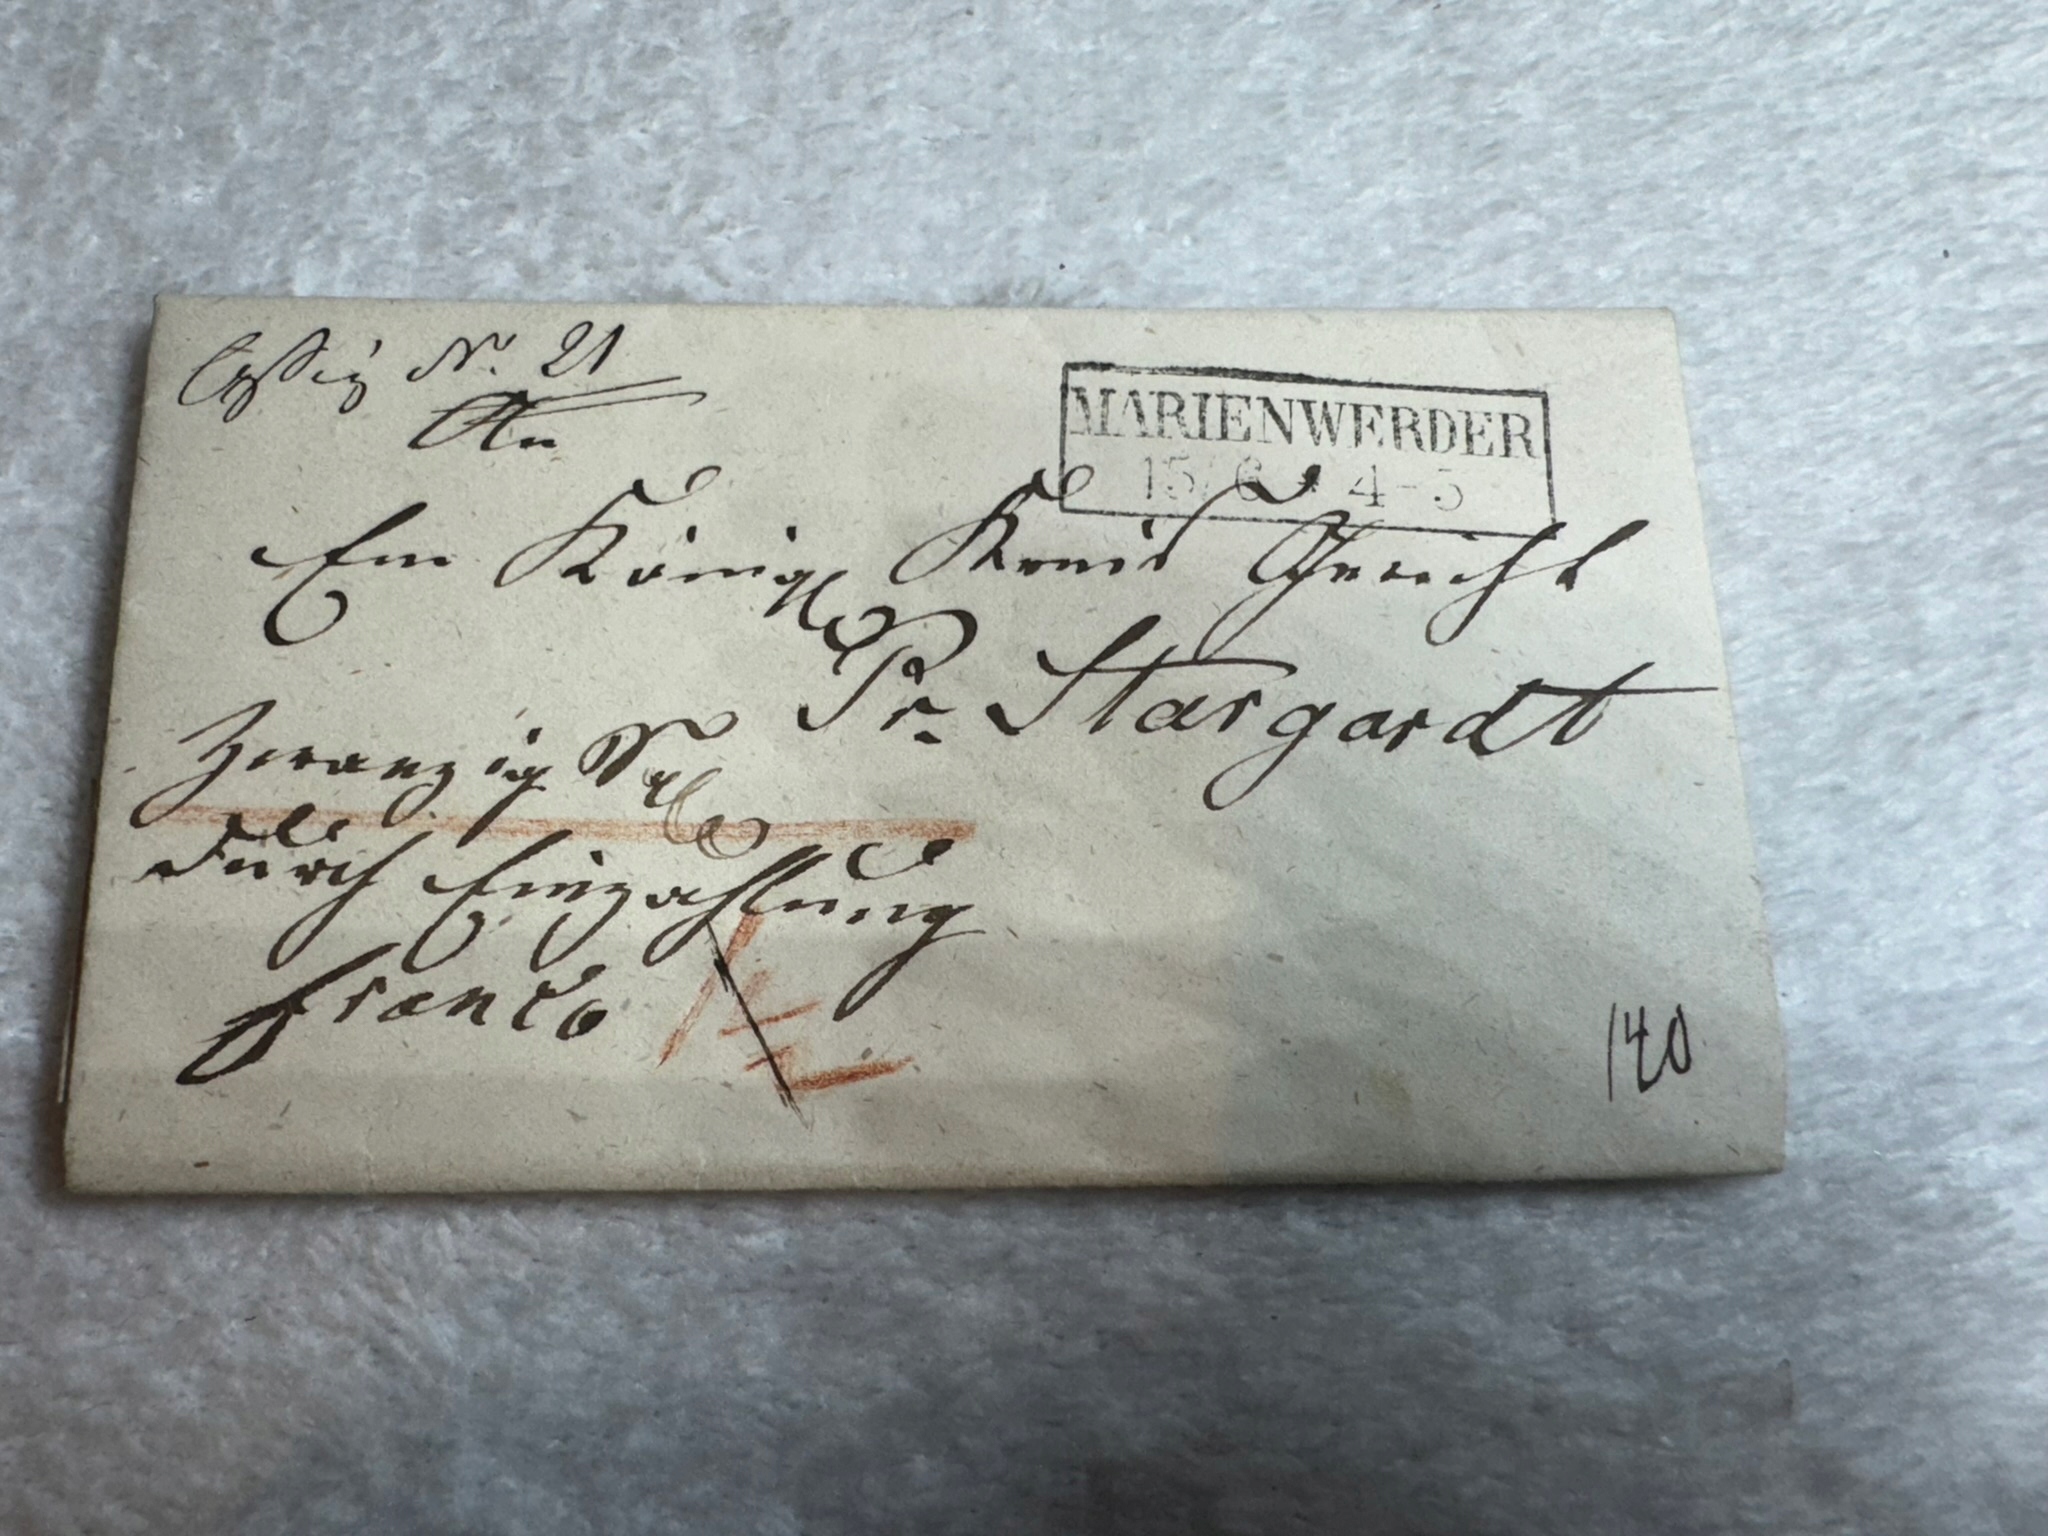 No. 21
An
MARIENWERDER
15/6 * 4-5
Ein Königl Kreis Gericht
Pr. Stargardt
Zwanzig
durch Einzahlung
franco
140